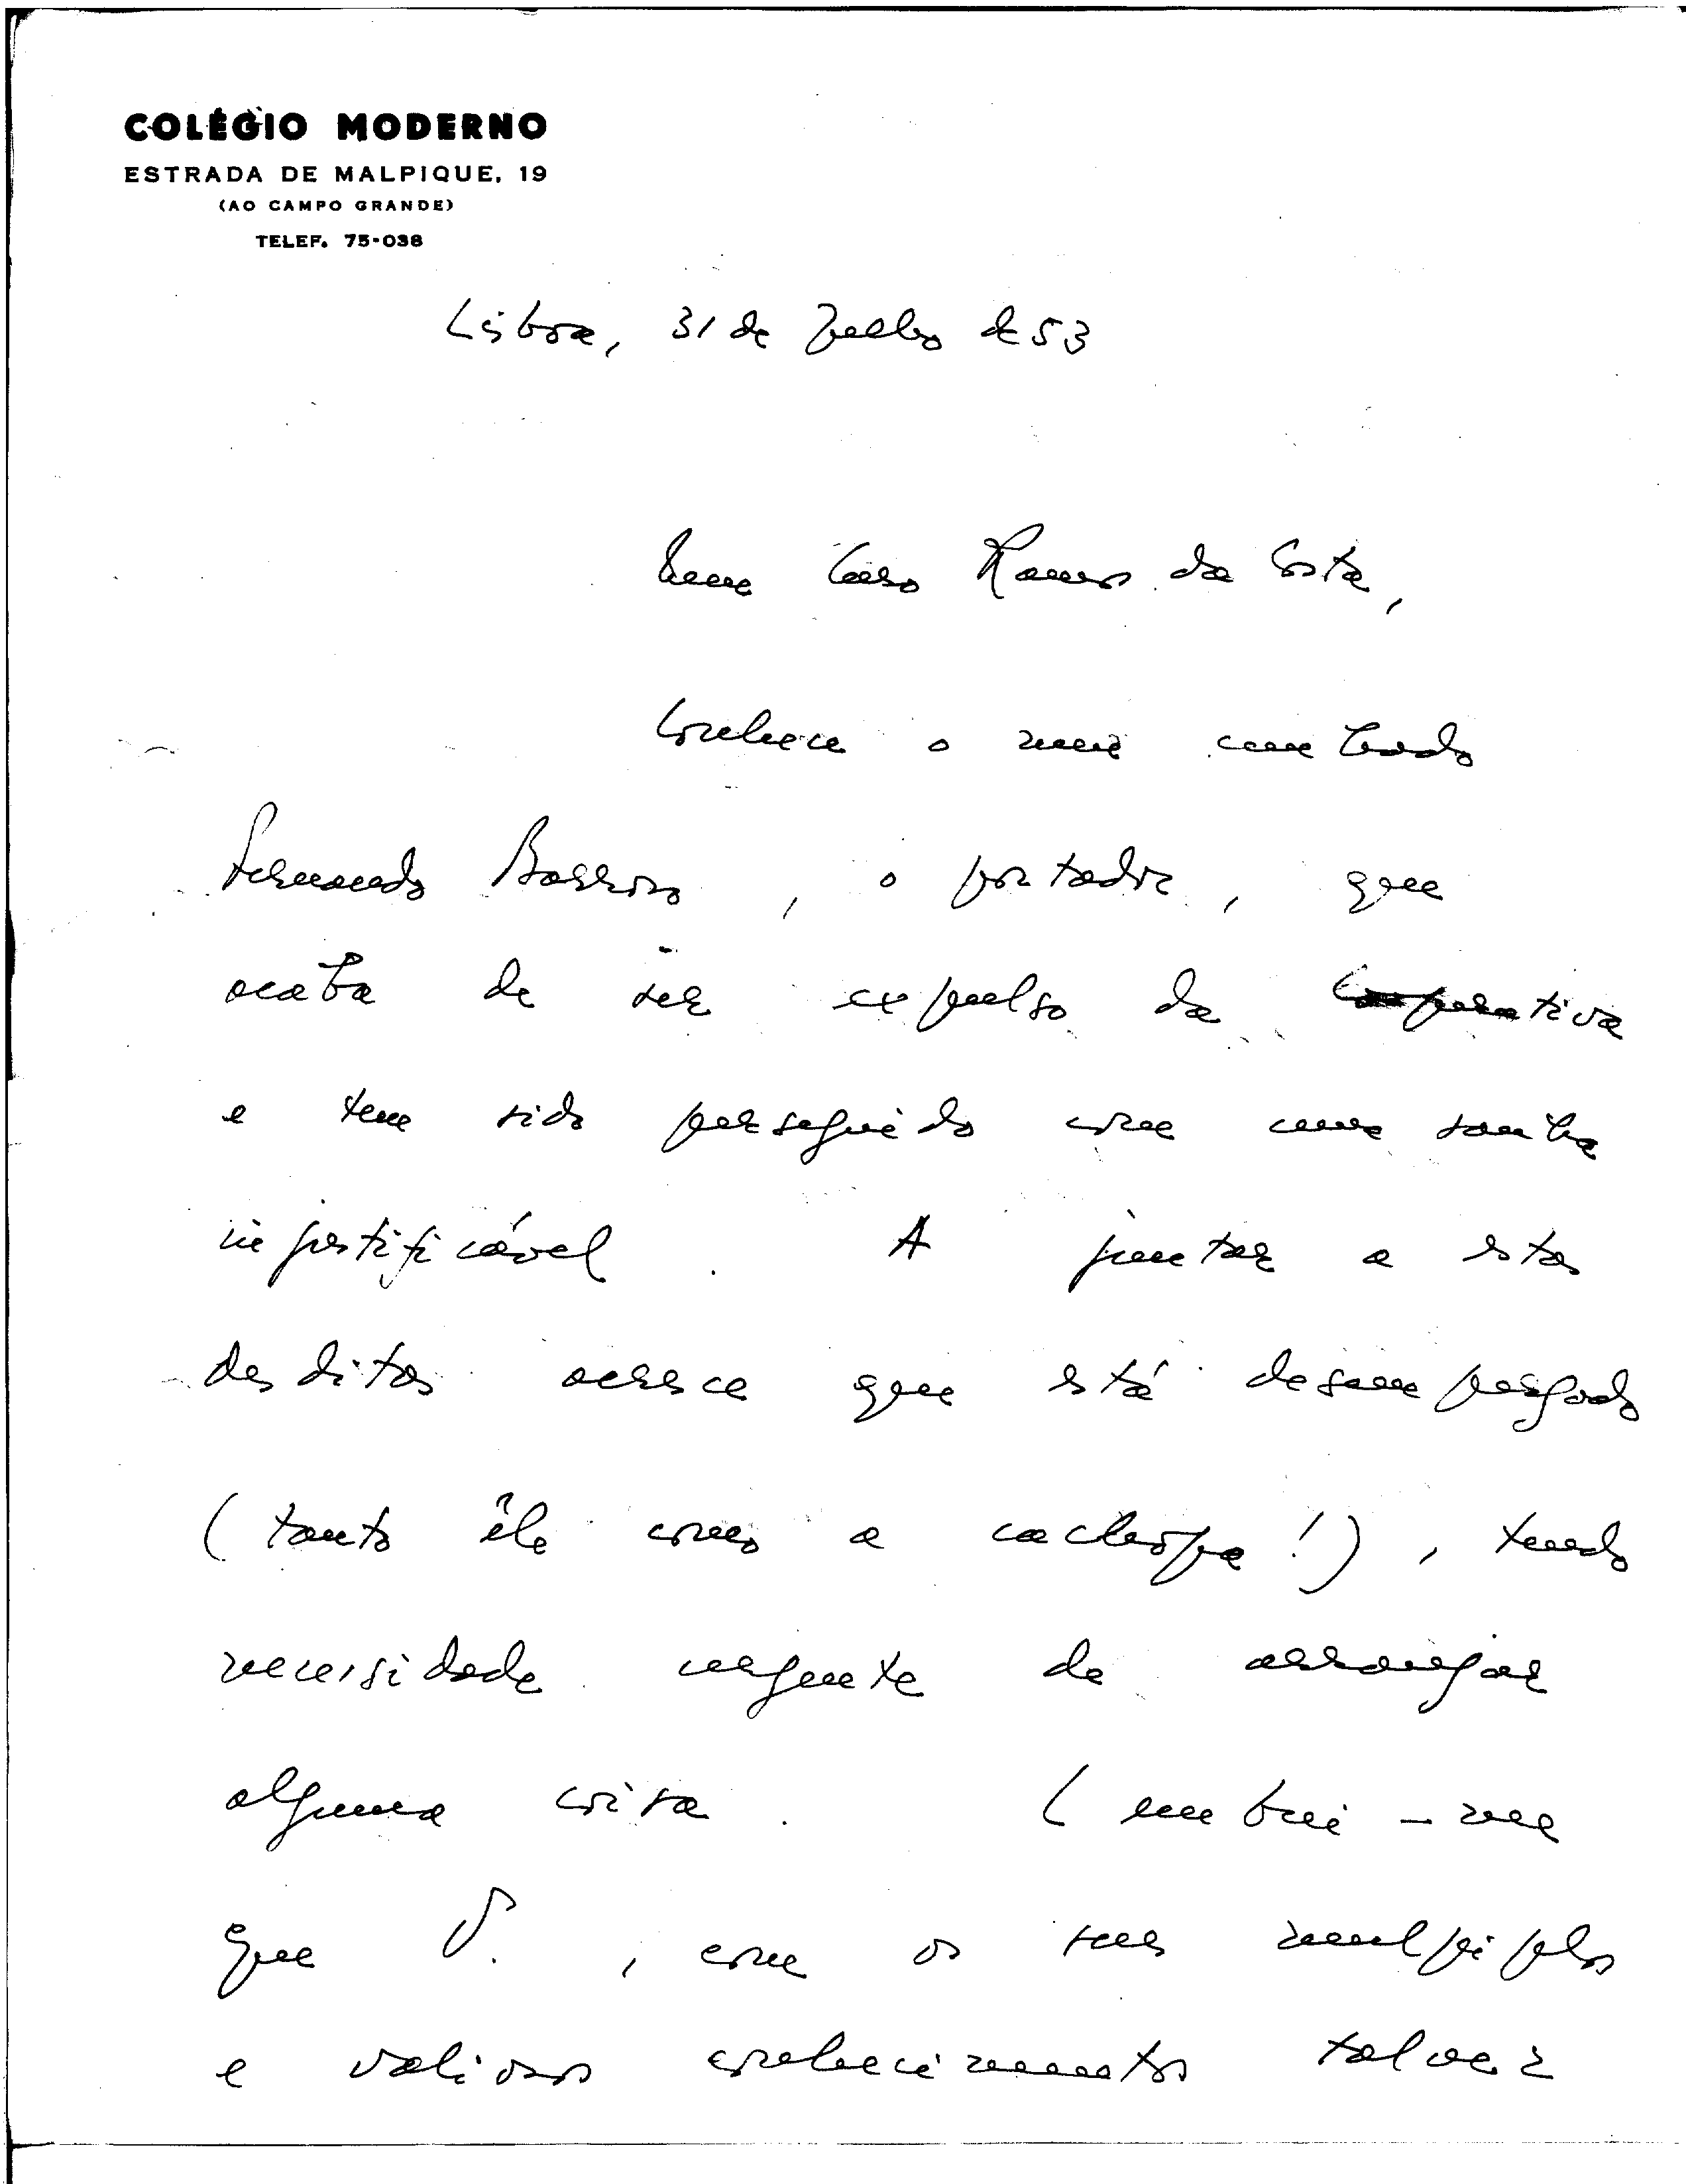 COLÉGIO MODERNO
ESTRADA DE MALPIQUE, 19
(AO CAMPO GRANDE)
TELEF. 75-038
Lisboa, 31 de Julho de 53
Meu Caro Ramos da Costa,
Conhece o meu cunhado
Fernando Barroso, o portador, que
acaba de ser expulso da Cooperativa
e tem sido perseguido com uma sanha
injustificável. A juntar a estas
desditas acresce que está desempregado
(tanto êle como a cachopa!), tendo
necessidade urgente de arranjar
alguma coisa. Lembrei-me
que V., com os seus multiplos
e valiosos conhecimentos talvez